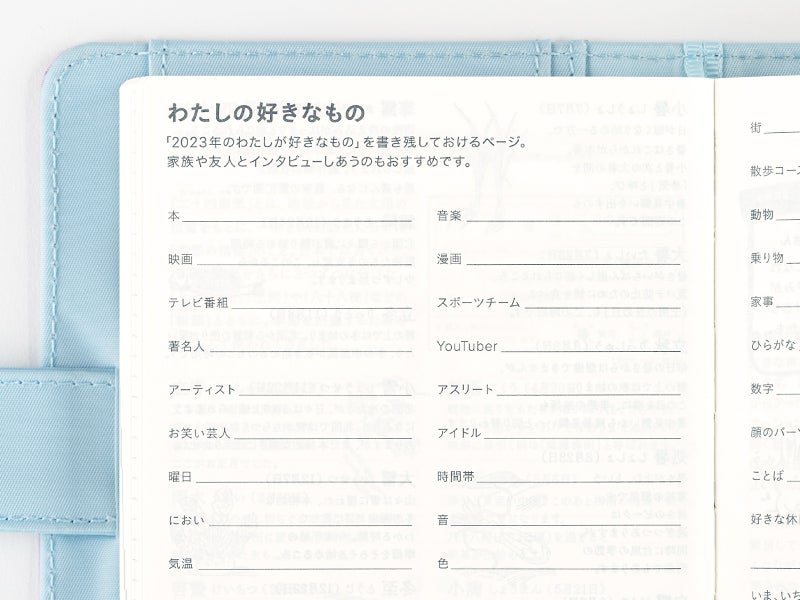 わたしの好きなもの
「2023年のわたしが好きなもの」を書き残しておけるページ。
家族や友人とインタビューしあうのもおすすめです。
本
映画
テレビ番組
著名人
アーティスト
お笑い芸人
曜日
におい
気温
音楽
漫画
スポーツチーム
YouTuber
アスリート
アイドル
時間帯
音
色
街
散歩コース
動物
乗り物
家事
ひらがな
数字
顔のパーツ
ことば
好きな休
いま、いち